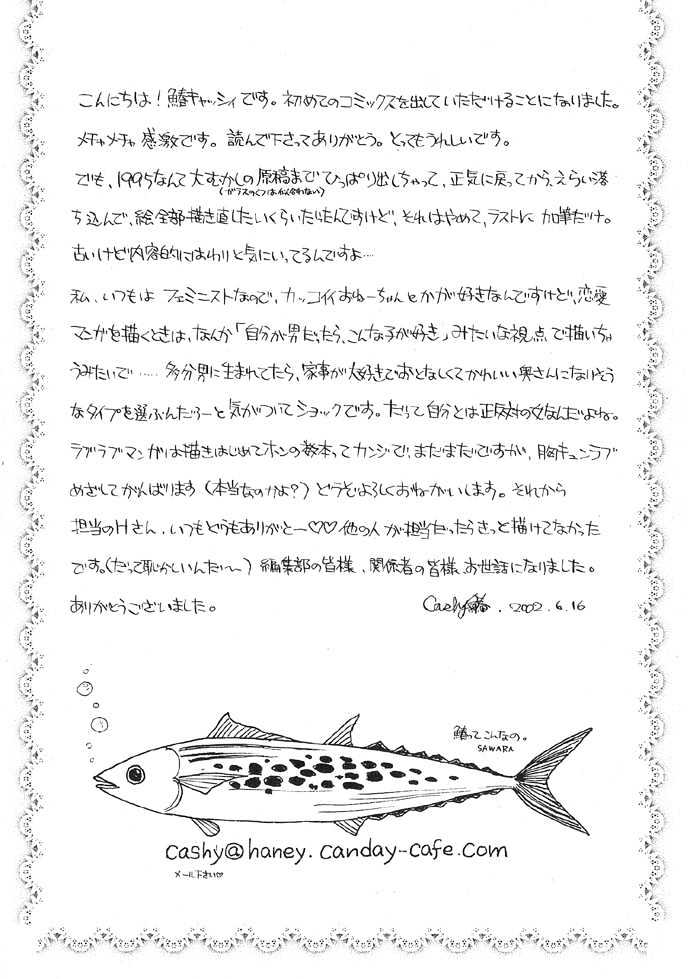 こんにちは！鰆キャッシィです。初めてのコミックスを出していただけることになりました。
メチャメチャ感激です。読んで下さってありがとう。とってもうれしいです。
でも、1995なんて大むかしの原稿までひっぱり出しちゃって、正気に戻ってから、えらい落
(ガラスのくつは似合わない)
ち込んで、絵全部描き直したいくらいだったんですけど、それはやめて、ラストに加筆だけ。
古いけど内容的にはわりと気にいってるんですよ…
私、いつもは フェミニストなので、カッコイイおねーちゃんとかが好きなんですけど、恋愛
マンガを描くときは、なんか「自分が男だったら、こんな子が好き」みたいな視点で描いちゃ
うみたいで…… 多分男に生まれてたら、家事が大好きでおとなしくてかわいい奥さんになりそう
なタイプを選ぶんだろーと気がついてショックです。だって自分とは正反対の女なんだよね。
ラブラブマンガは描きはじめてホンの数本ってカンジで、まだまだですが、胸キュンラブ
めざしてがんばります(本当なのかよ？)どうぞよろしくおねがいします。それから
担当のHさん、いつもどうもありがとー♡♡他の人が担当だったらきっと描けてなかった
です。(だって恥かしいんだ〜)編集部の皆様、関係者の皆様、お世話になりました。
ありがとうございました。
Cashy鰆. 2002.6.16
鰆ってこんなの。
SAWARA
cashy@haney.canday-cafe.com
メール下さい♡